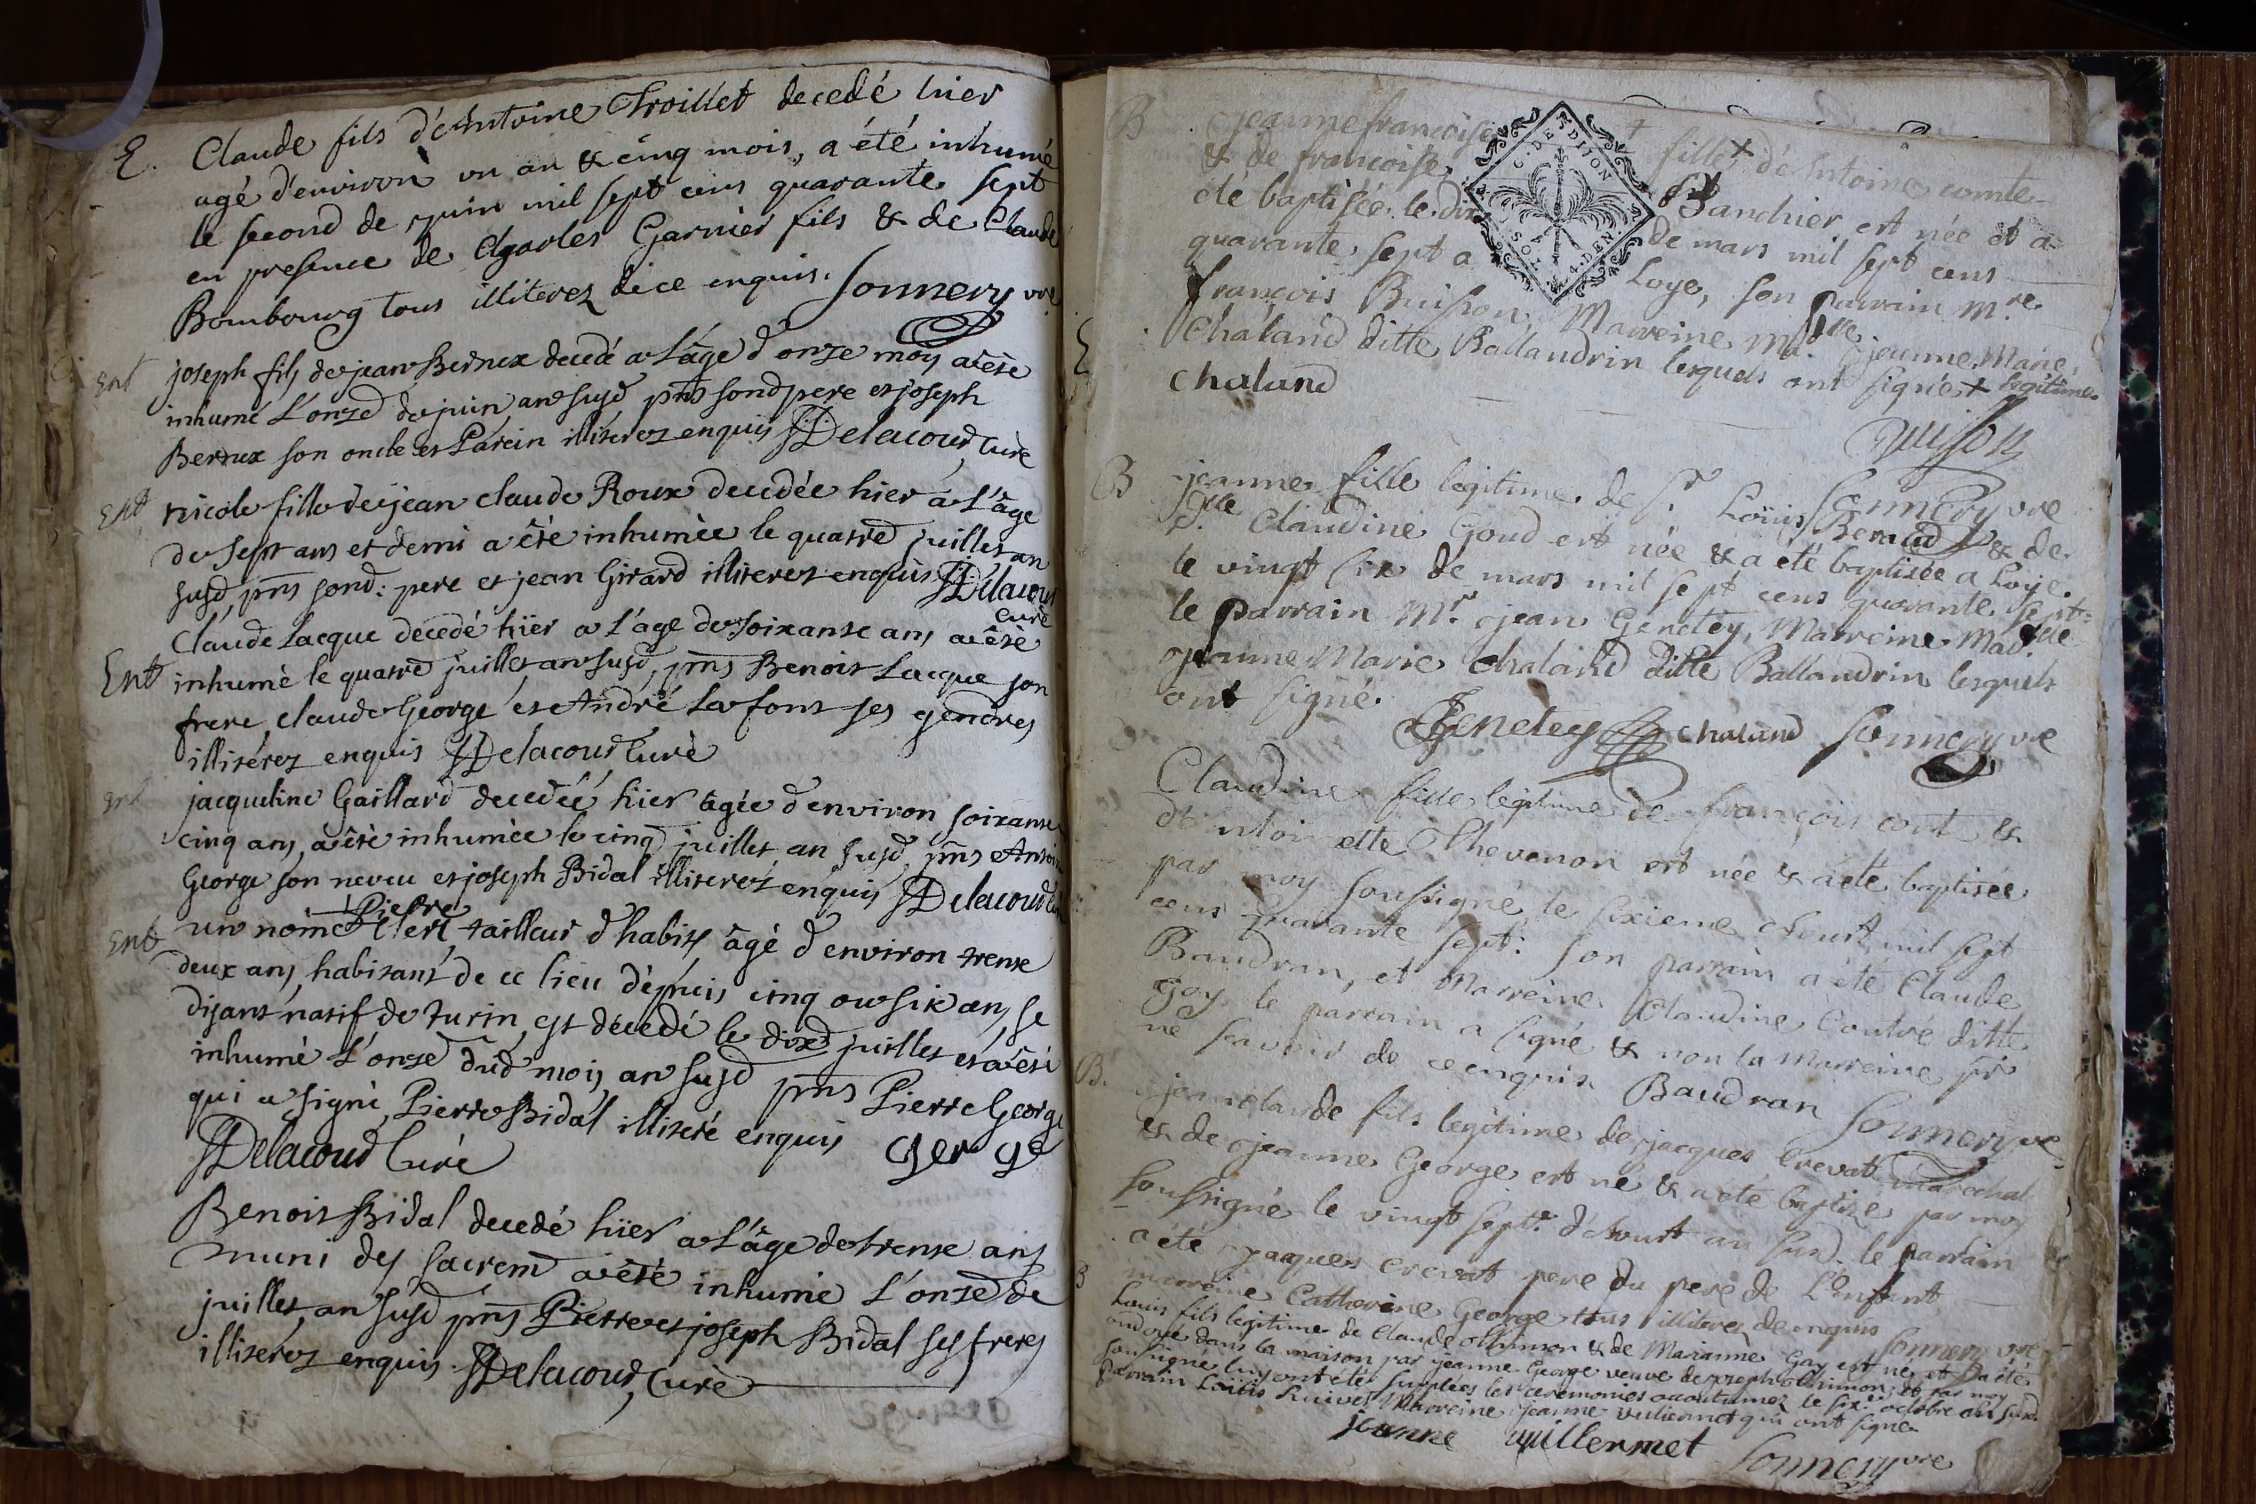 E. Claude fils d'Antoine Troillet decedé hier
agé d'environ un an & cinq mois, a été inhumé
le second de juin mil sept cens quarante sept
en presence de Charles Garnier fils & de Claude
Bombourg tous illiterez de ce enquis. Sonnery vre
Ent joseph fils de jean Bernux decedé a l'âge d'onze mois a été
inhumé l'onze de juin an susd pnts sond pere et joseph
Bernux son oncle et Parein illiterez enquis Delacour, Curé
Ent Nicole fille de jean claude Roux decedée hier à l'âge
de sept ans et demi a été inhumée le quatre juillet an
susd, pnts sond: pere et jean Girard illiterez enquis Delacour
Curé
Claude Lacque decedé hïer a l'âge de soixante ans a été
Ent inhumé le quatre juillet an susd, pnts Benoit Lacque son
frere, claude George et André Lafont ses gendres
illiterez enquis Delacour Curé
Ent jacqueline Gaillard decedée hïer âgée d'environ soixante
cinq ans, a été inhumée le cinq juillet an susd, pnts Antoine
George son neveu et joseph Bidal illiterez enquis Delacour
Pierre
Ent un nomé Clert tailleur d'habits, âgé d'environ trente
deux ans, habitant de ce lieu dépuis cinq ou six ans, se
disant natif de turin, est décedé le dix juillet et a été
inhumé l'onze dud mois, an susd pnts Pierre George
qui a signé, Pierre Bidal illiteré enquis
Delacour Curé George
Benoit Bidal decedé hïer a l'âge de trente ans
muni des sacrem a été inhumé l'onze de
juillet an susd pnts Pierre et joseph Bidal ses freres
illiterez enquis. Delacour, Curé
B jeanne francoise + fille + d'Antoine comte
& de francoise Banchier est née et a
été baptisée le dix de mars mil sept cens
quarante sept a Loye, son parrain Mre
François Buisson, Marreine Madlle jeanne Marie
Chaland ditte Ballandrin lesquels ont signé + legitime
chaland
Buisson
Sonnery vre
B jeanne fille legitime de Sr Loüis Beraud & de
Dlle Claudine Goud est née & a été baptisée a Loye
le vingt six de mars mil sept cens quarante sept
le parrain Mr. jean Genetey, Marreine Madlle
jeanne Marie Chaland ditte Ballandrin lesquels
ont signé.
Genetey chaland Sonnery vre
Claudine fille legitime de françois cont &
d'Antoinette Thevenon est née & a été baptisée
par moy soussigné le sixieme d'Aoust mil sept
cens quarante sept: son parrain a été Claude
Baudran, et Marreine Claudine Contré ditte
Goy, le parrain a signé & non la Marreine pr
ne savoir de ce enquise Baudran Sonnery vre
B. jean claude fils legitime de jacques Crevat maréchal
& de jeanne George est né & a été baptizé par moy
soussigné le vingt sept d'Aoust an susd. le parrain
a été jacques crevat pere du pere de l'enfant
marreine Catherine George tous illiterez de enquis
Sonnery vre
B Louis fils legitime de Claude Thimon & de Marianne Gay est né et a été
ondoyé dans la maison par jeanne George veuve de joseph Thimon, et par moy
soussigné luy ont été suplées les ceremonies accoutumez le six octobre an susd.
parrain Loüis Marreine jeanne vuillermet qui ont signé
jeanne vuillermet Sonnery vre